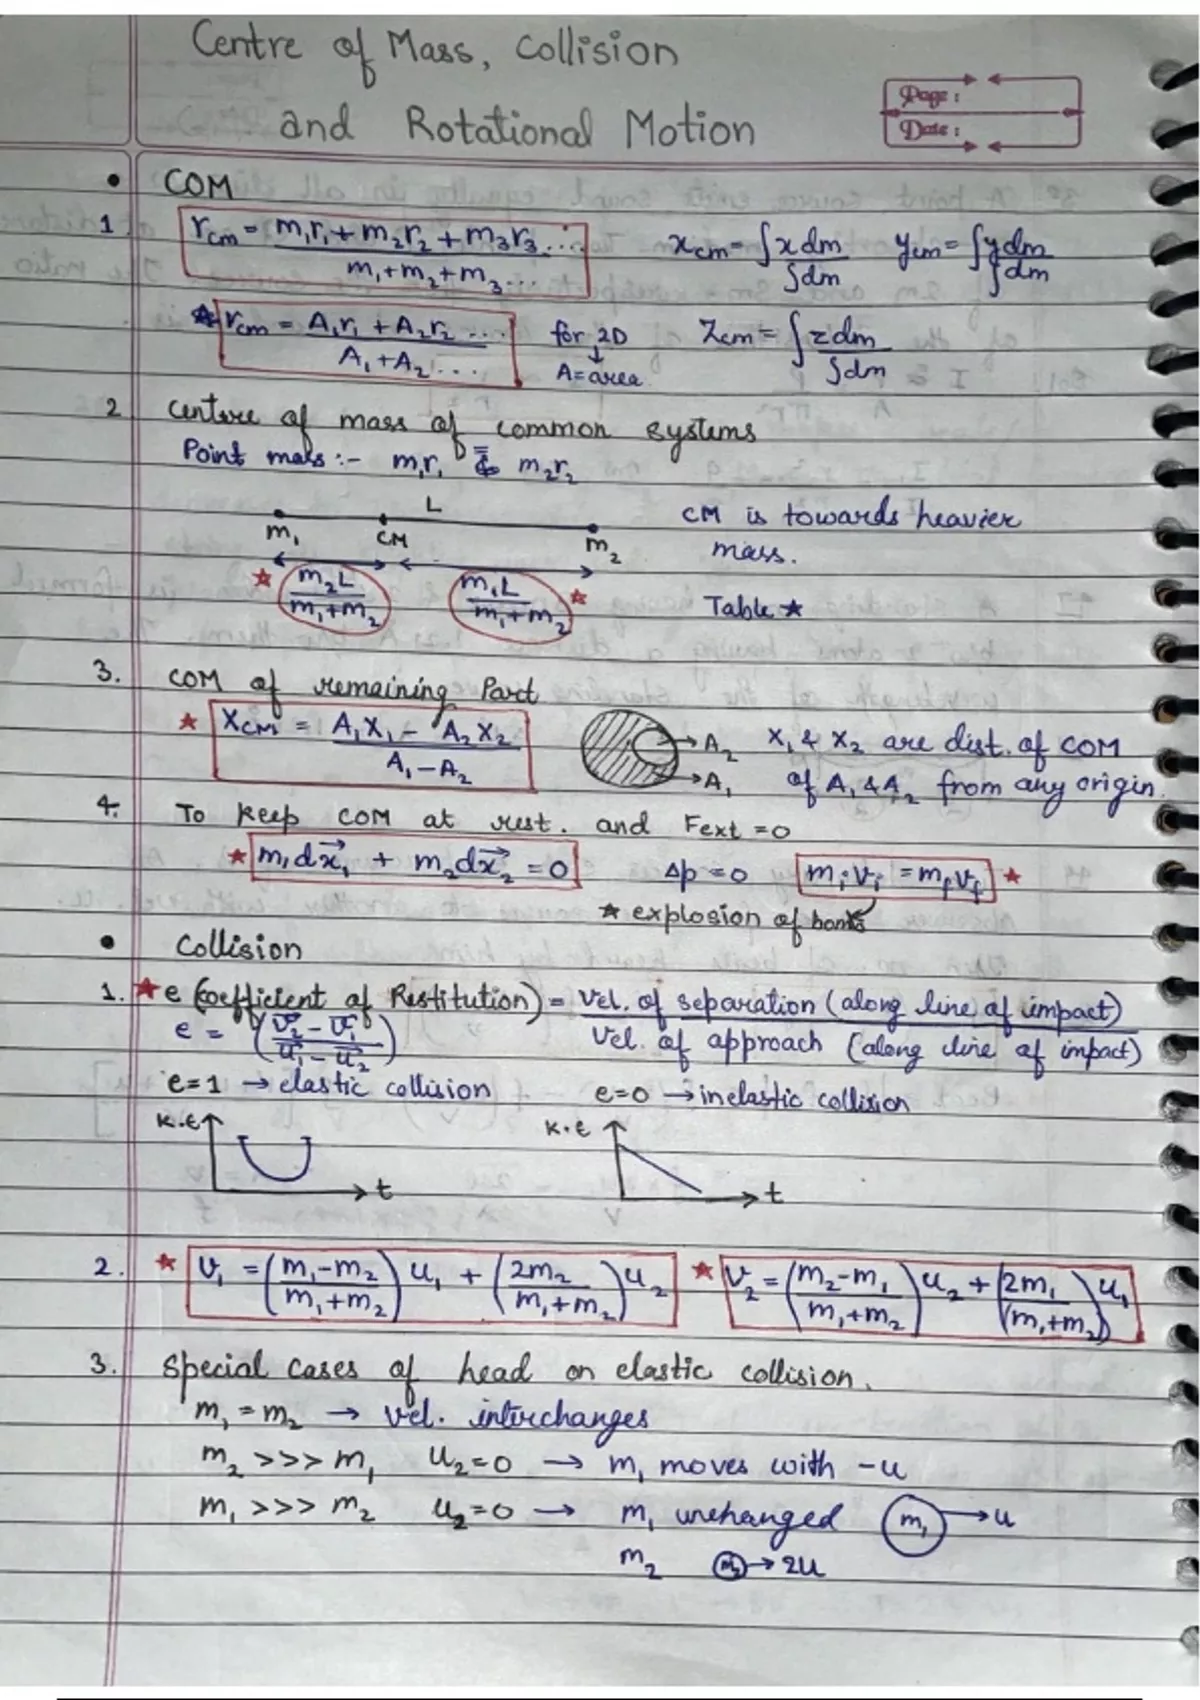 Centre of Mass, Collision
and Rotational Motion
Page:
Date:
• COM
1. r_cm = (m₁r₁ + m₂r₂ + m₃r₃ ...) / (m₁ + m₂ + m₃ ...) x_cm = ∫x dm / ∫dm y_cm = ∫y dm / ∫dm
★ r_cm = (A₁r₁ + A₂r₂ ...) / (A₁ + A₂ ...) for 2D Z_cm = ∫z dm / ∫dm
↓
A = area
2 Centere of mass of common systems
Point mass :- m₁r₁ = m₂r₂
L
m₁ CM m₂ CM is towards heavier
mass.
★ m₂L / (m₁ + m₂) m₁L / (m₁ + m₂) ★ Table ★
3. COM of remaining Part
★ X_CM = (A₁X₁ - A₂X₂) / (A₁ - A₂) → A₂ → A₁ X₁ & X₂ are dist. of COM
of A₁ & A₂ from any origin.
4. To keep COM at rest. and Fext = 0
★ m₁dx⃗₁ + m₂dx⃗₂ = 0 Δp = 0 mᵢvᵢ = m_f v_f ★
★ explosion of
• Collision
1. ★ e (Coefficient of Restitution) = Vel. of separation (along line of impact) / Vel. of approach (along line of impact)
e = ((v⃗₂ - v⃗₁) / (u⃗₁ - u⃗₂))
e = 1 → elastic collision e = 0 → inelastic collision
K.E t K.E t
2. ★ v₁ = ((m₁ - m₂) / (m₁ + m₂)) u₁ + (2m₂ / (m₁ + m₂)) u₂ ★ v₂ = ((m₂ - m₁) / (m₁ + m₂)) u₂ + (2m₁ / (m₁ + m₂)) u₁
3. Special Cases of head on elastic collision.
m₁ = m₂ → vel. interchanges
m₂ >>> m₁ u₂ = 0 → m₁ moves with -u
m₁ >>> m₂ u₂ = 0 → m₁ unchanged m₁ → u
m₂ m₂ → 2u